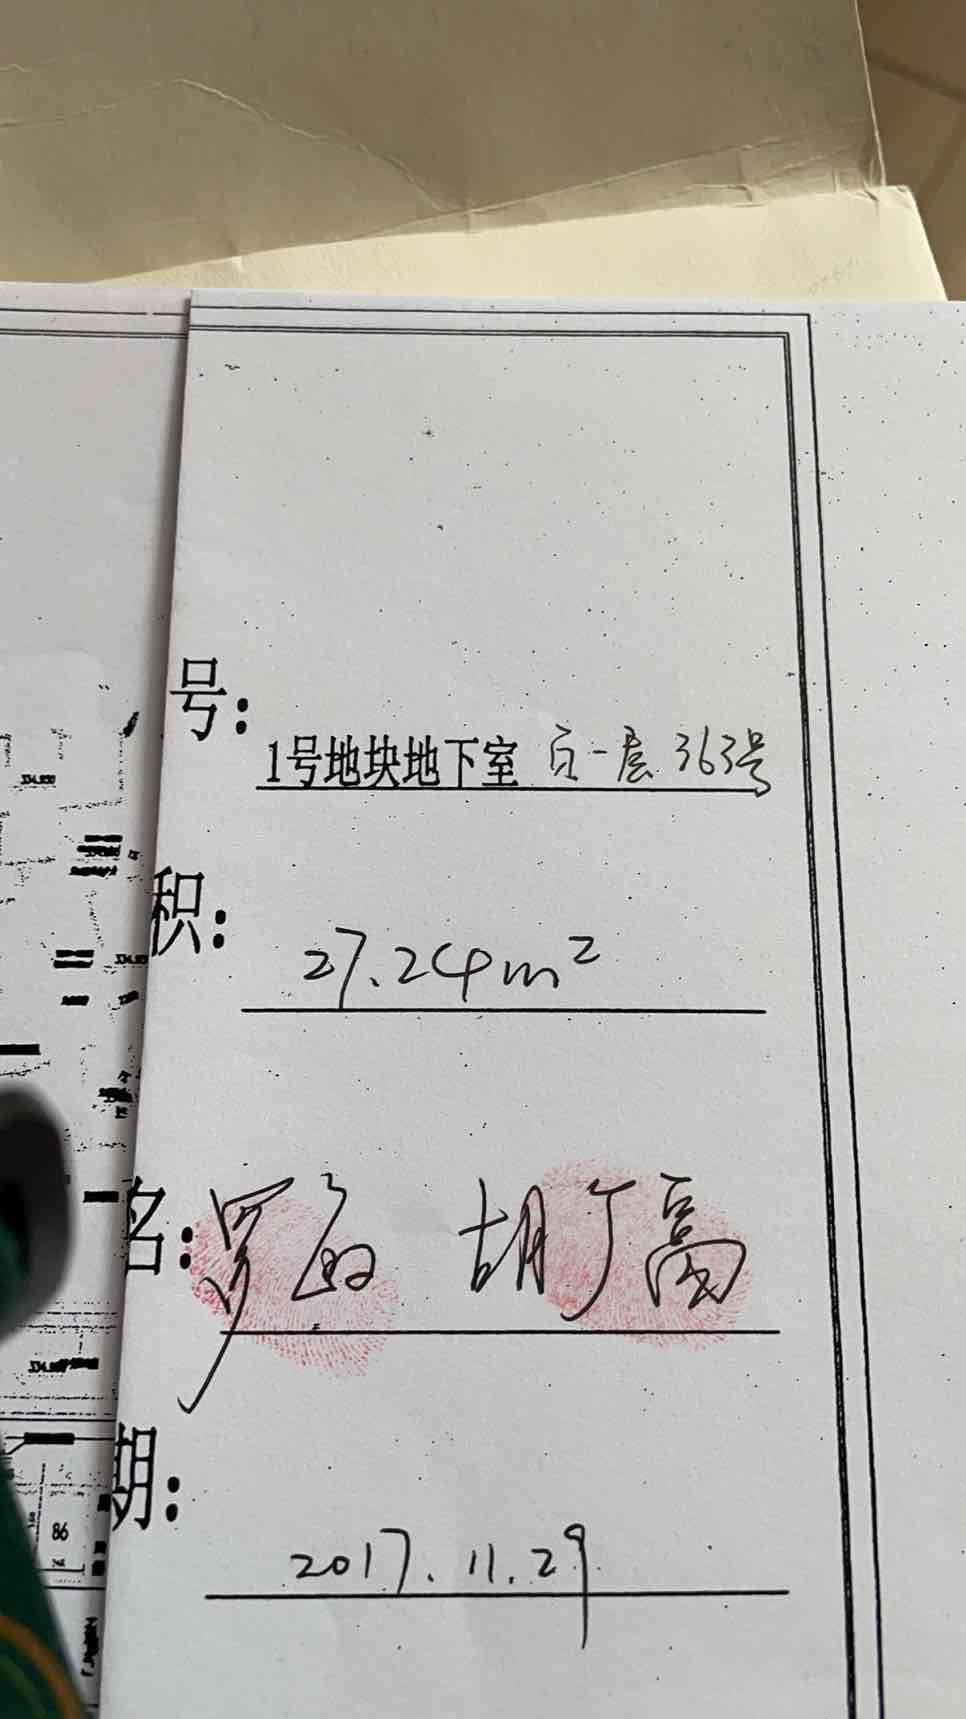 号:
1号地块地下室 负一层 363号
积:
27.24m²
名: 罗 胡
期:
2017.11.29
86